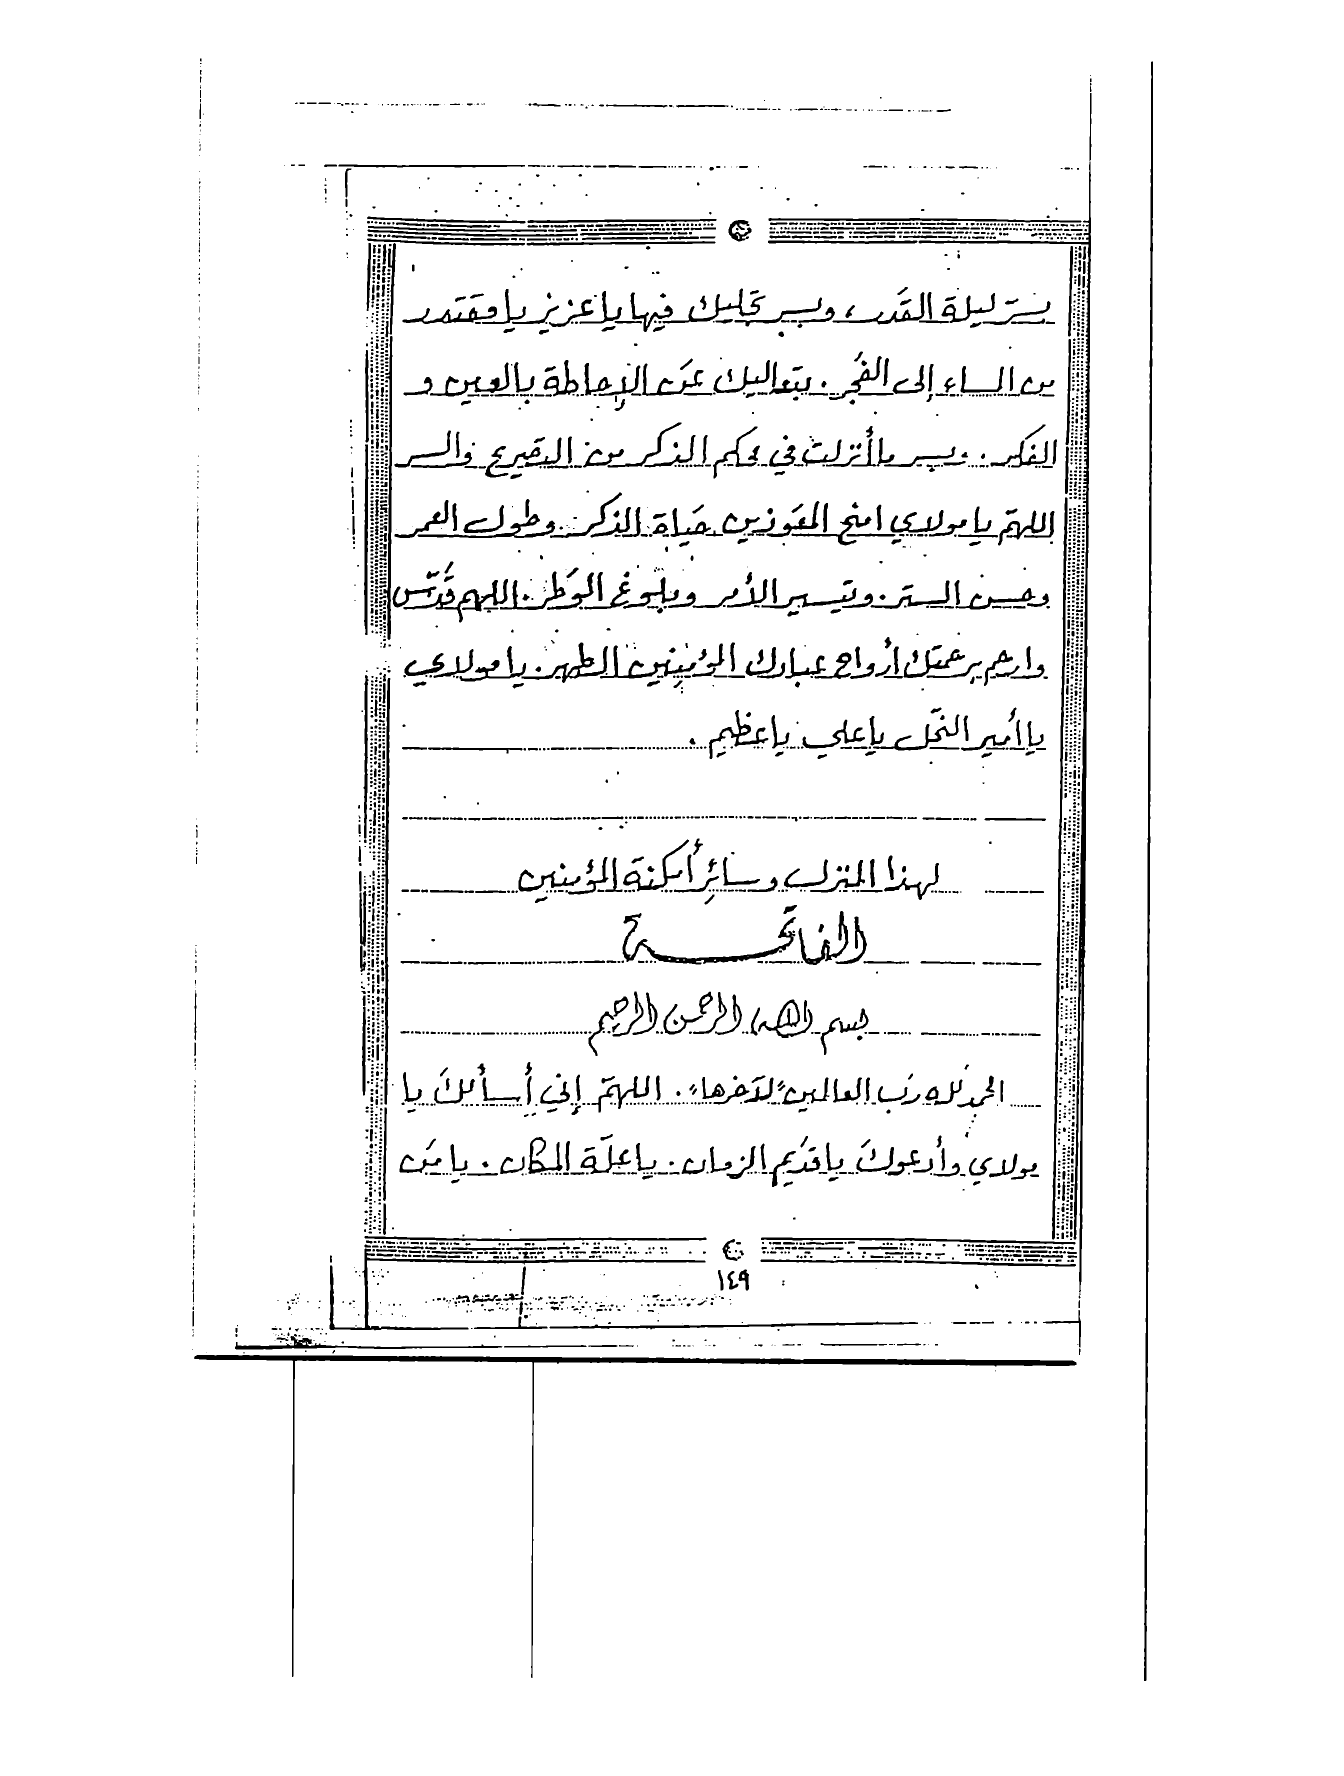 بسرّ ليلة القَدر، وبسر تجليك فيها يا عزيز يا مقتدر
من المساء إلى الفجر. بتعاليك عَن الإحاطة بالعين و
الفكر. وبسر ما أنزلت في محكم الذكر من التصريح والسر
اللهمّ يا مولاي امنح المعوذين حَياة الذكر. وطول العمر
وحسن الستر. وتيسير الأمر وبلوغ الوَطر. اللهم قَدّس
وارحم برحمتك أرواح عبادك المؤمِنين الطهر. يا مولاي
يا أمير النحَل يا علي يا عظيم.
لهذا المنزل وسائر أمكنة المؤمنين
الفاتحـــة
بسم الله الرحمن الرحيم
الحمد لله رَب العالمين "لآخرها". اللهمّ إني أسألكَ يا
مولاي وأدعوكَ يا قدَيم الزمان. يا علَة المكان. يا مَن
١٤٩